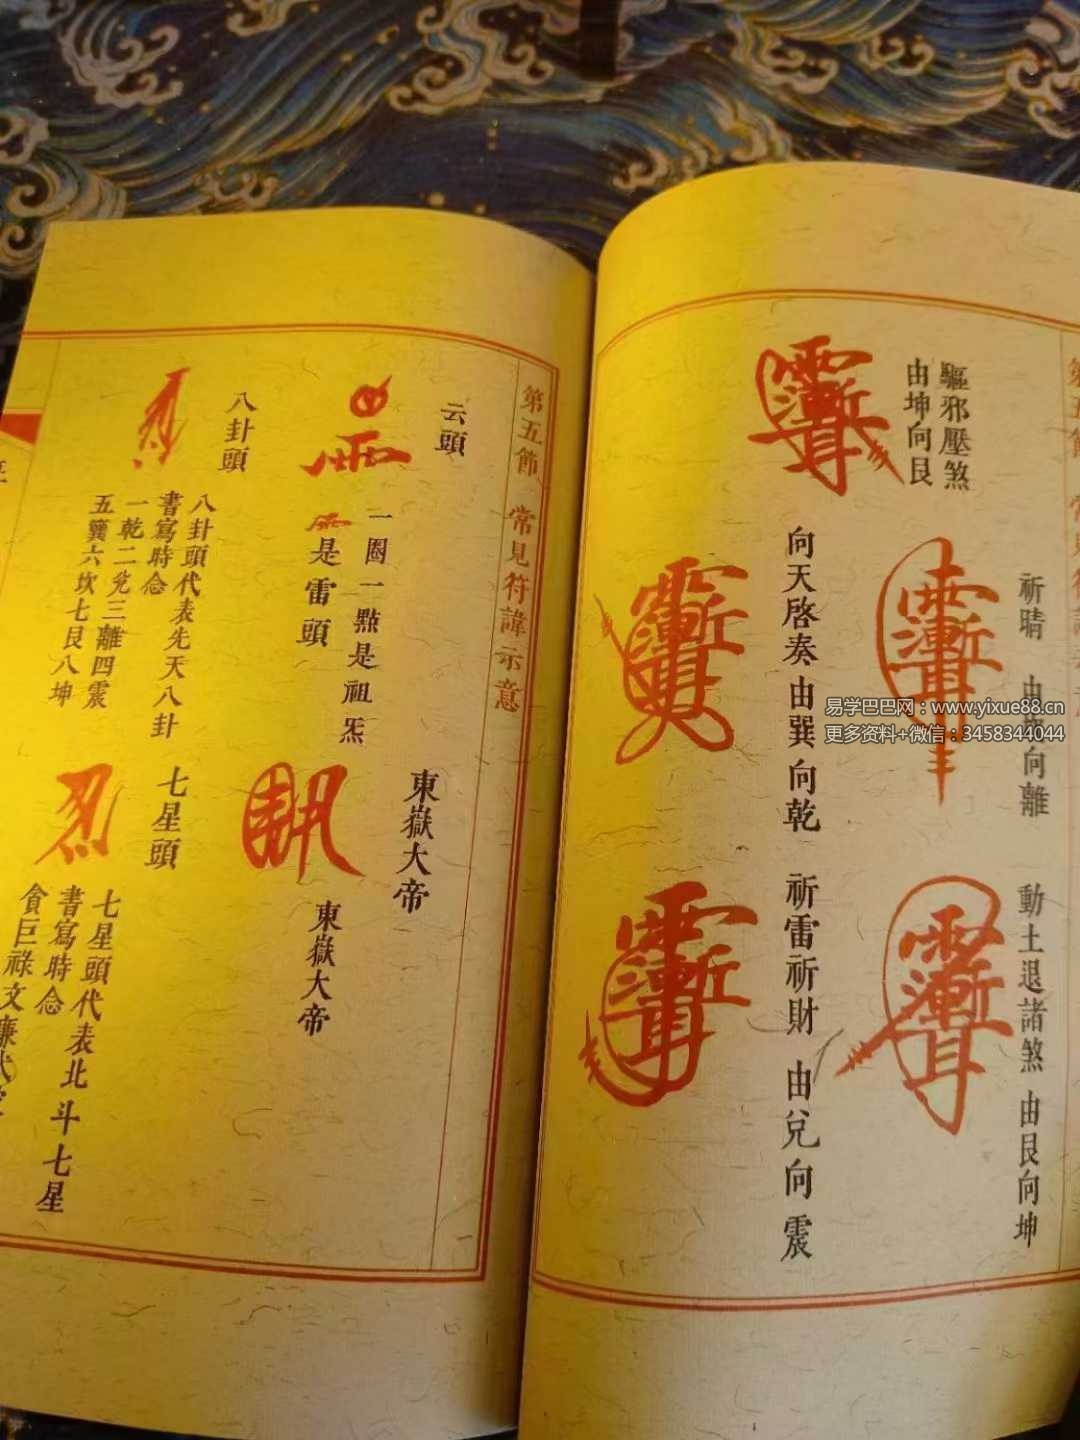 驅邪壓煞
由坤向艮
祈晴
向離
動土退諸煞
由艮向坤
向天啓奏
由巽向乾
祈雷祈財
由兌向震
第五節
常見符諱示意
云頭
一圈一點是祖炁
是雷頭
東嶽大帝
東嶽大帝
八卦頭
八卦頭代表先天八卦
書寫時念
一乾二兌三離四震
五巽六坎七艮八坤
七星頭
七星頭代表北斗七星
書寫時念
貪巨祿文廉武
易学巴巴网：www.yixue88.cn
更多资料+微信：3458344044